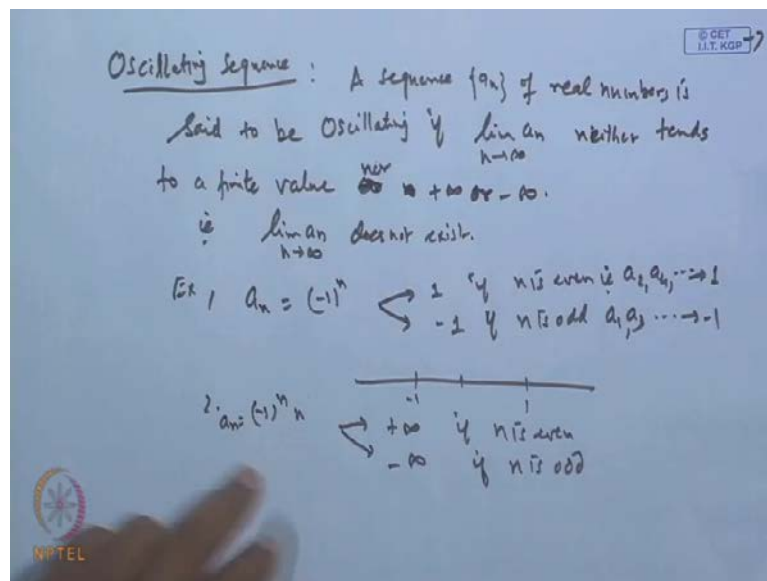 © CET
I.I.T. KGP
Oscillating Sequence : A sequence {an} of real numbers is
said to be Oscillating if lim an neither tends
n→∞
to a finite value nor +∞ or -∞.
ie lim an does not exist.
n→∞
Ex 1 an = (-1)^n 1 if n is even ie a2, a4, ...→1
-1 if n is odd a1, a3 ...→-1
-1 1
2. an= (-1)^n n +∞ if n is even
-∞ if n is odd
NPTEL